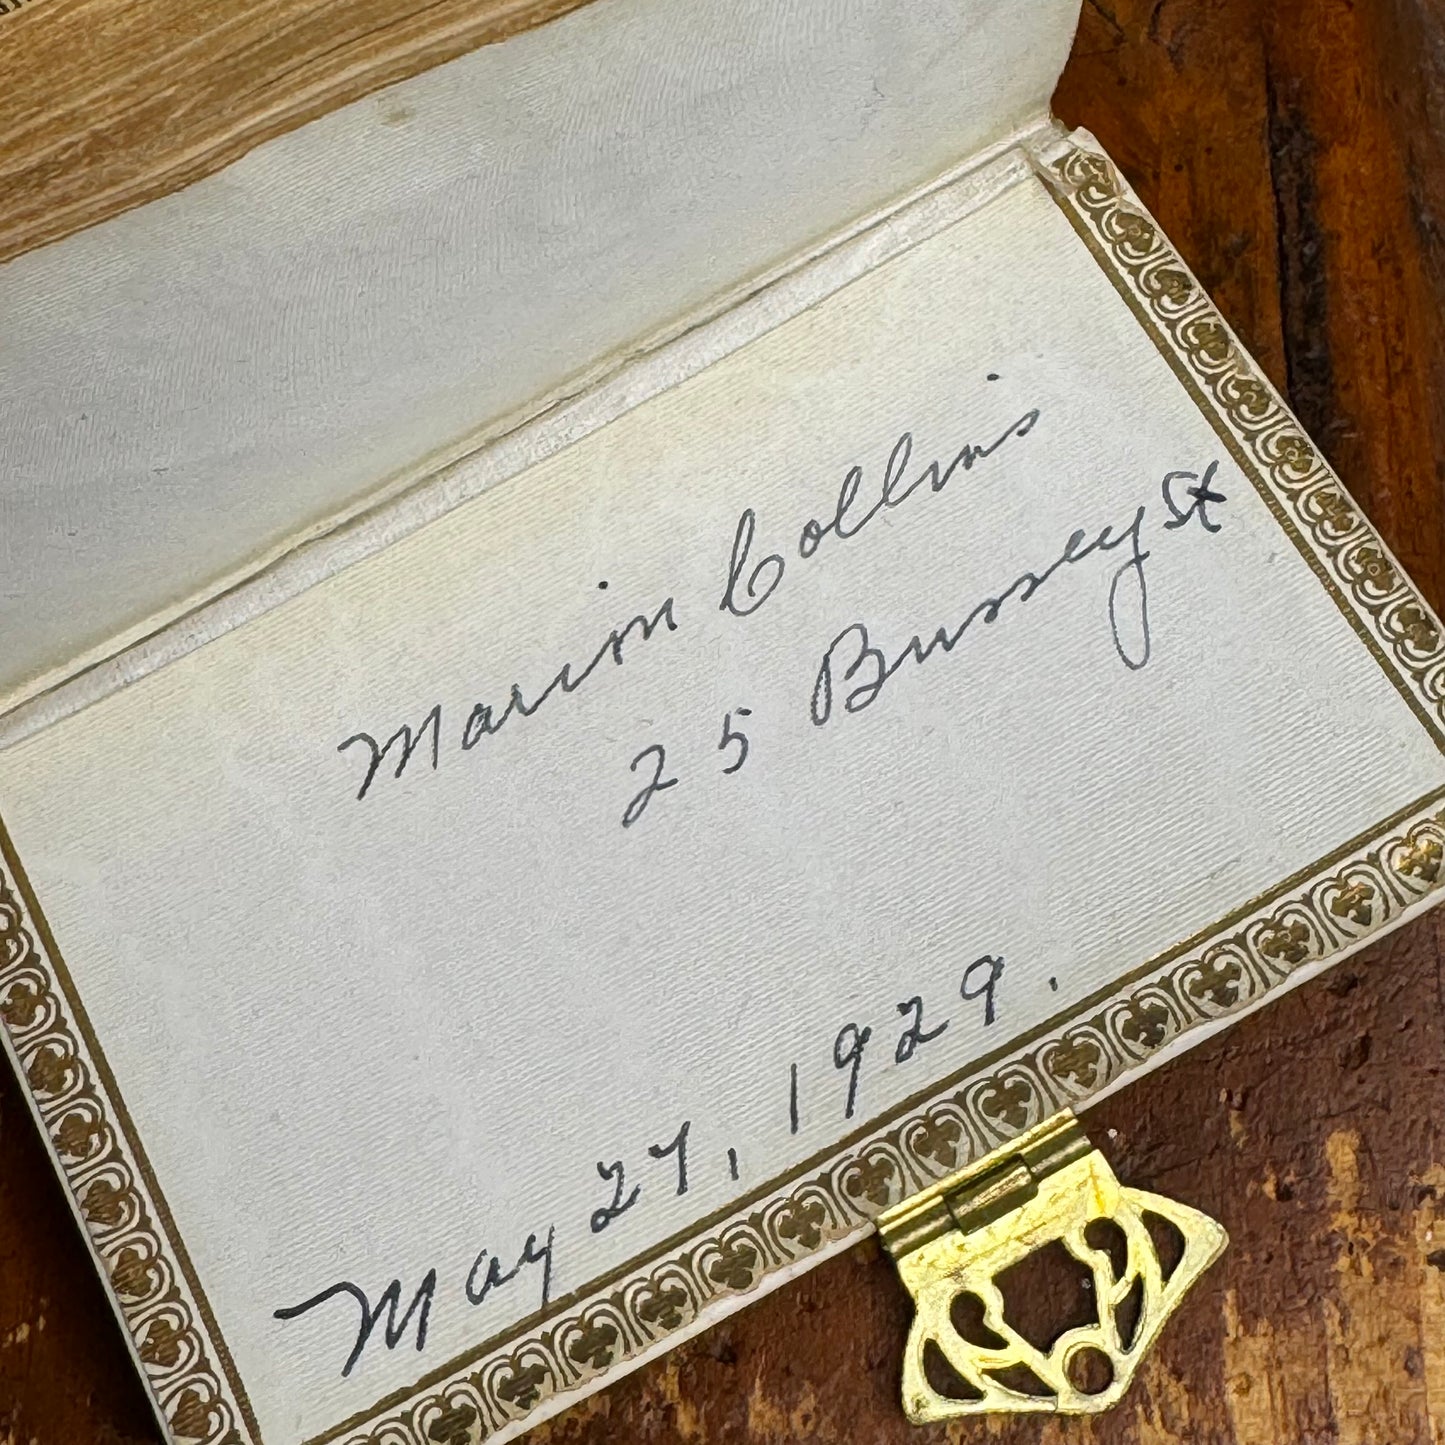 Marion Collins
25 Bussey St
May 27, 1929.